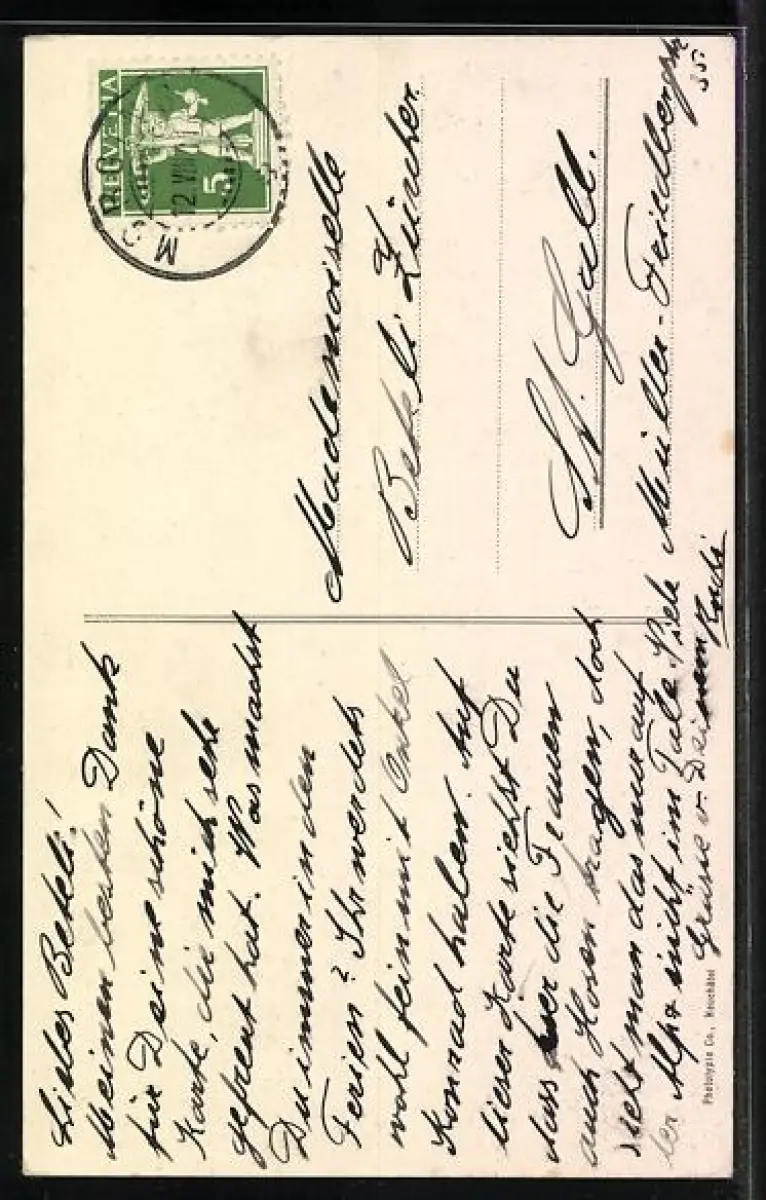 Liebes Bekeli!
Meinen besten Dank
für Deine schöne
Karte, die mich sehr
gefreut hat. Was machst
Du immer in den
Ferien? Ihr werdets
wohl fein mit Onkel
Konrad haben. Auf
dieser Karte siehst Du
dass hier die Frauen
auch Hosen tragen, doch
sieht man das nur auf
der Alp & nicht im Tale. Viele
Grüsse v. Deinem
HELVETIA
5
12. VIII
Mademoiselle
Bekeli Zürcher
St. Gall.
Müller-Friedbergstr
35.
Phototypie Co., Neuchâtel